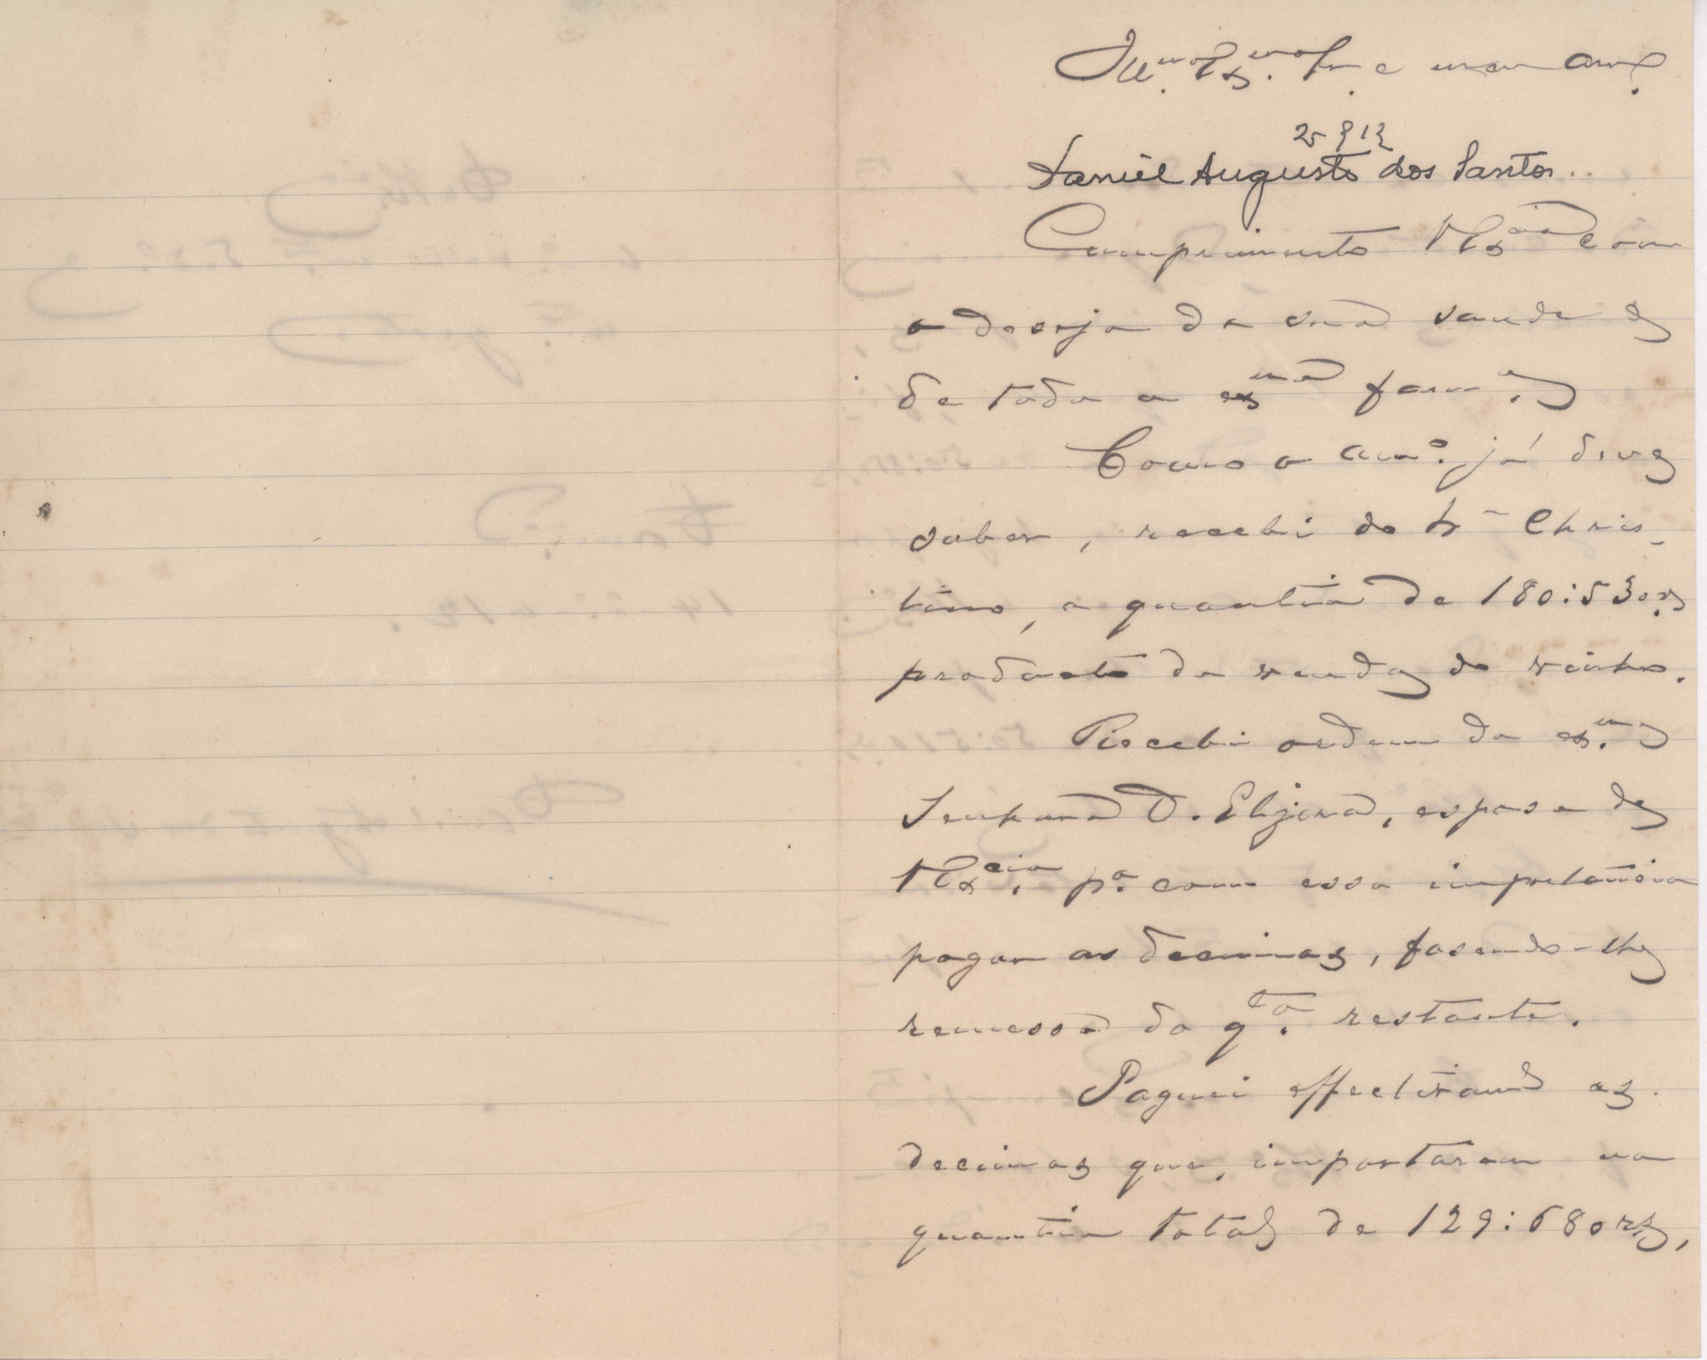 Ill.mo Ex.mo Sr. e meu am.o
Daniel Augusto dos Santos..
Cumprimento V Ex.cia com
o desejo da sua saude e
de toda a ex.ma fam.a
Como o am.o já deve
saber, recebi do Sr Chris-
tino, a quantia de 180:530rs
producto da venda do vinho.
Recebi ordem da ex.ma
Senhora D. , esposa de
V Ex.cia, p.a com essa importancia
pagar as decimas, fasendo-lhe
remessa da q.ta restante.
Paguei effectivam.e as
decimas que, importaram na
quantia total de 129:680rs,